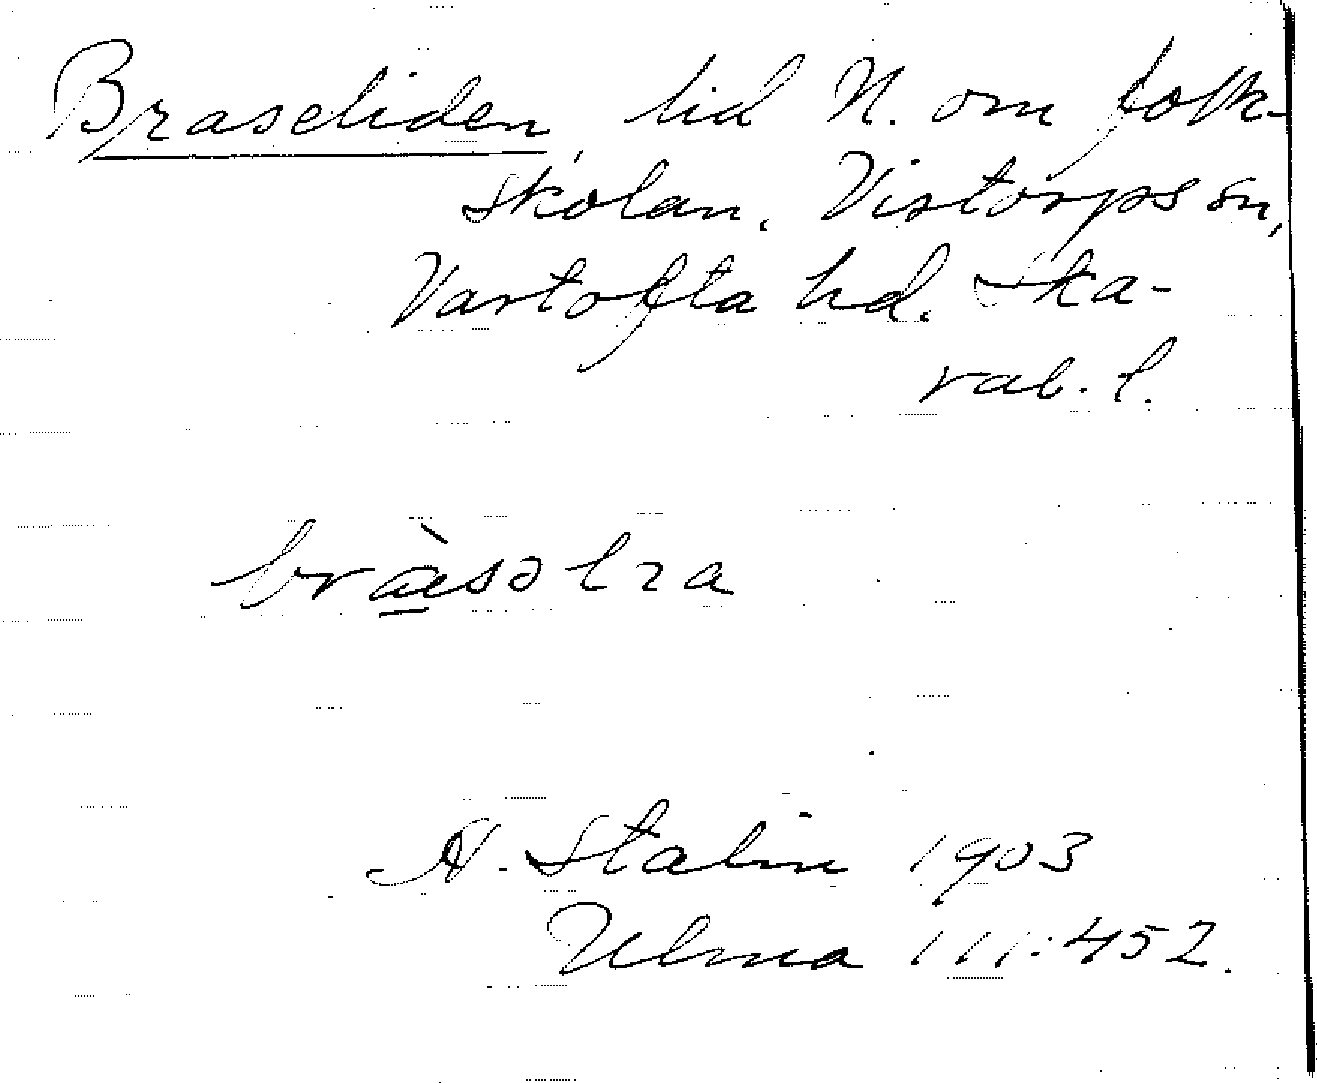 Braseliden, lid N. om folk-
skolan. Vistorps sn,
Vartofta hd. Ska-
rab. l.
brà̱səlɿa
H. Stalin 1903
Ulma 111:452.